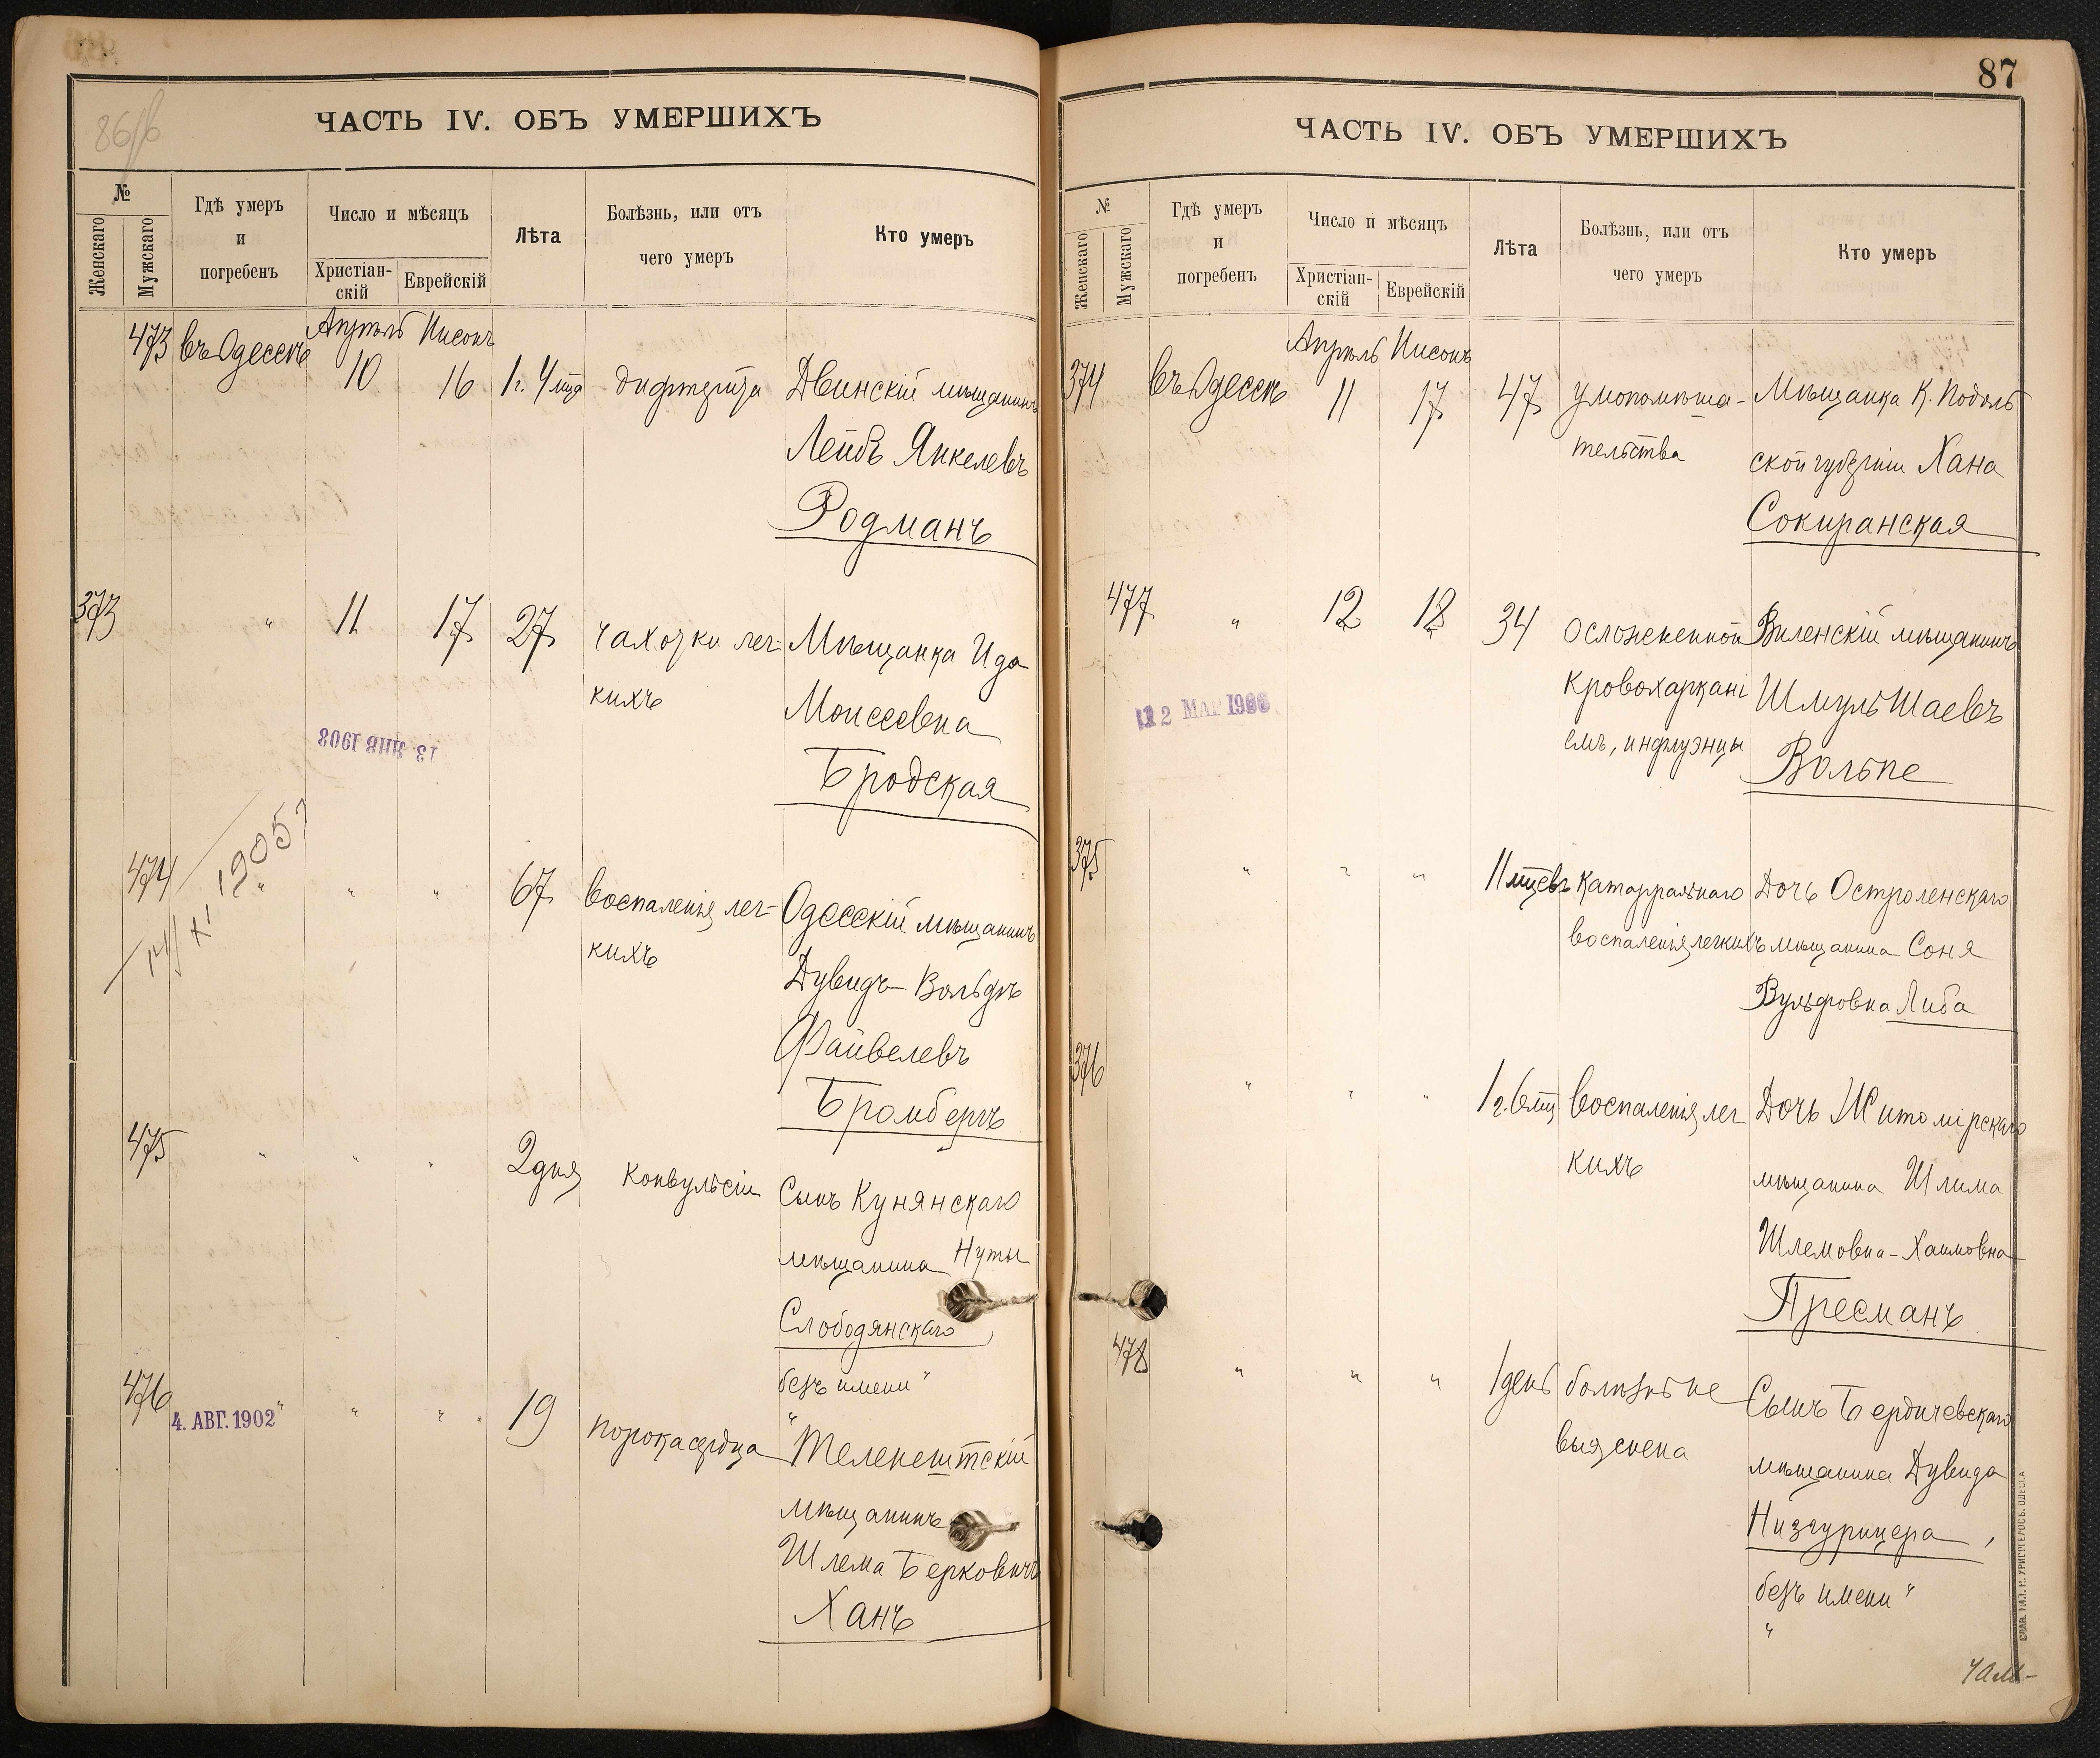 86/б
ЧАСТЬ IV. ОБЪ УМЕРШИХЪ
№
Женскаго
Мужскаго
Гдѣ умеръ
и
погребенъ
Число и мѣсяцъ
Христіан-
скій
Еврейскій
Лѣта
Болѣзнь, или отъ
чего умеръ
Кто умеръ
473 въ Одессѣ Апрѣль Нисонъ
10 16 1 г. 4 мца дифтерита Двинскій мѣщанинъ
Лейбъ Янкелевъ
Родманъ
373 " 11 17 27 чахотки лег- Мѣщанка Ида
кихъ Моисеевна
Бродская
13 ЯНВ 1908
14/XI 1905 г
474 " " " 67 воспаленія лег- Одесскій мѣщанинъ
кихъ Дувидъ-Вольфъ
Файвелевъ
Бромбергъ
475 " " " 2 дня конвульсіи Сынъ Кунянскаго
мѣщанина Нуты
Слободянскаго,
безъ имени"
476 " " " 19 порока сердца "Теленештскій
4. АВГ. 1902
мѣщанинъ
Шлема Берковичъ
Ханъ
87
ЧАСТЬ IV. ОБЪ УМЕРШИХЪ
№
Женскаго
Мужскаго
Гдѣ умеръ
и
погребенъ
Число и мѣсяцъ
Христіан-
скій
Еврейскій
Лѣта
Болѣзнь, или отъ
чего умеръ
Кто умеръ
374 въ Одессѣ Апрѣль Нисонъ
11 17 47 умопомѣша- Мѣщанка К. Подоль
тельства ской губерніи Хана
Сокиранская
477 " 12 18 34 осложненной Виленскій мѣщанинъ
кровохаркані Шмуль Шаевъ
емъ, инфлуэнцы Вольпе
12 МАР
375 " " " 11 мцевъ катарральнаго Дочь Остроленскаго
воспаленія легкихъ мѣщанина Соня
Вульфовна Либа
376 " " " 1 г. 6 мц. воспаленія лег Дочь Житомірскаго
кихъ мѣщанина Шлима
Шлемовна-Хаимовна
Пресманъ
478 " " " 1 день болѣзнь не Сынъ Бердичевскаго
выяснена мѣщанина Дувида
Низгурицера,
безъ имени"
"
СЛАВ. ТИП. Н. ХРИСОГЕЛОСЪ. ОДЕССА